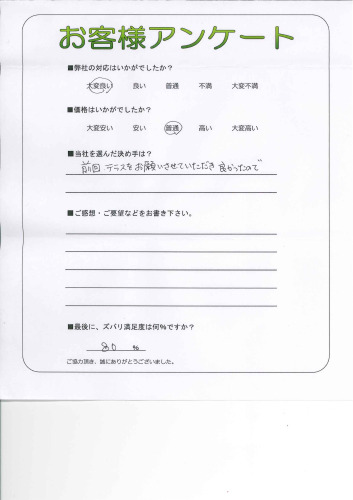 お客様アンケート
■弊社の対応はいかがでしたか?
大変良い 良い 普通 不満 大変不満
■価格はいかがでしたか?
大変安い 安い 普通 高い 大変高い
■当社を選んだ決め手は?
前回 テラスをお願いさせていただき 良かったので
■ご感想・ご要望などをお書き下さい。
■最後に、ズバリ満足度は何%ですか?
80 %
ご協力頂き、誠にありがとうございました。